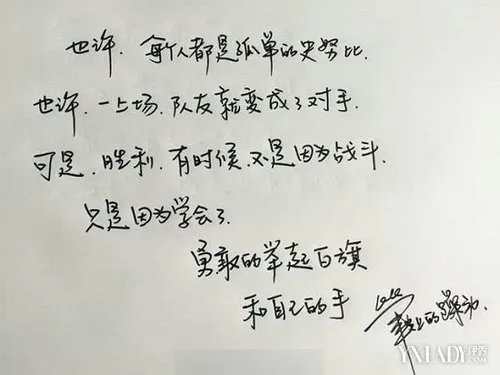 也许.每个人都是孤单的史努比.
也许.一上场.队友就变成了对手.
可是.胜利.有时候.不是因为战斗.
只是因为学会了.
勇敢的举起白旗
和自己的手
YXLADY 伊秀
.COM